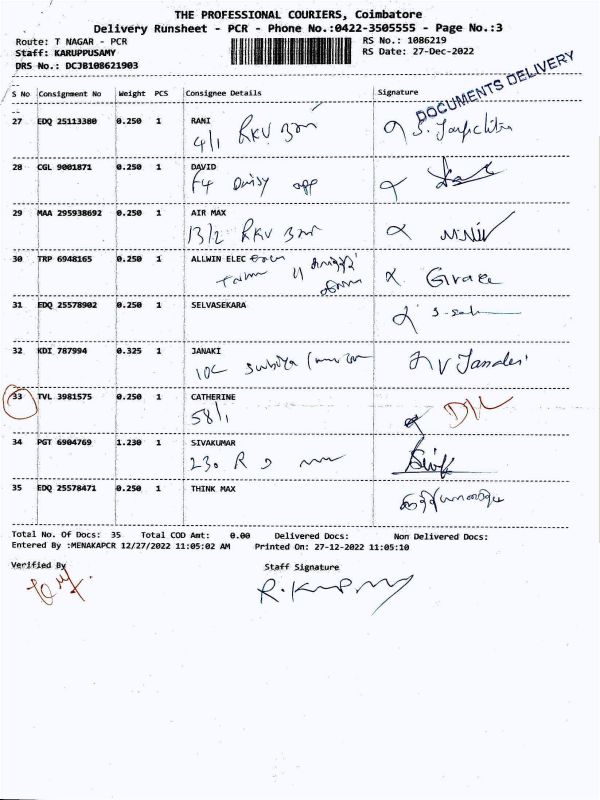 THE PROFESSIONAL COURIERS, Coimbatore
Delivery Runsheet - PCR - Phone No.:0422-3505555 - Page No.:3
Route: T NAGAR - PCR RS No.: 1086219
Staff: KARUPPUSAMY RS Date: 27-Dec-2022
DRS No.: DCJB108621903
DOCUMENTS DELIVERY
S No Consignment No Weight PCS Consignee Details Signature
27 EDQ 25113380 0.250 1 RANI
4/1 RKV
28 CGL 9001871 0.250 1 DAVID
F4 Daisy app
29 MAA 295938692 0.250 1 AIR MAX
13/2 RKV
30 TRP 6948165 0.250 1 ALLWIN ELEC
Grace
31 EDQ 25578902 0.250 1 SELVASEKARA
32 KDI 787994 0.325 1 JANAKI
10C
33 TVL 3981575 0.250 1 CATHERINE
58/1
34 PGT 6904769 1.230 1 SIVAKUMAR
230 R
35 EDQ 25578471 0.250 1 THINK MAX
Total No. Of Docs: 35 Total COD Amt: 0.00 Delivered Docs: Non Delivered Docs:
Entered By :MENAKAPCR 12/27/2022 11:05:02 AM Printed On: 27-12-2022 11:05:10
Verified By Staff Signature